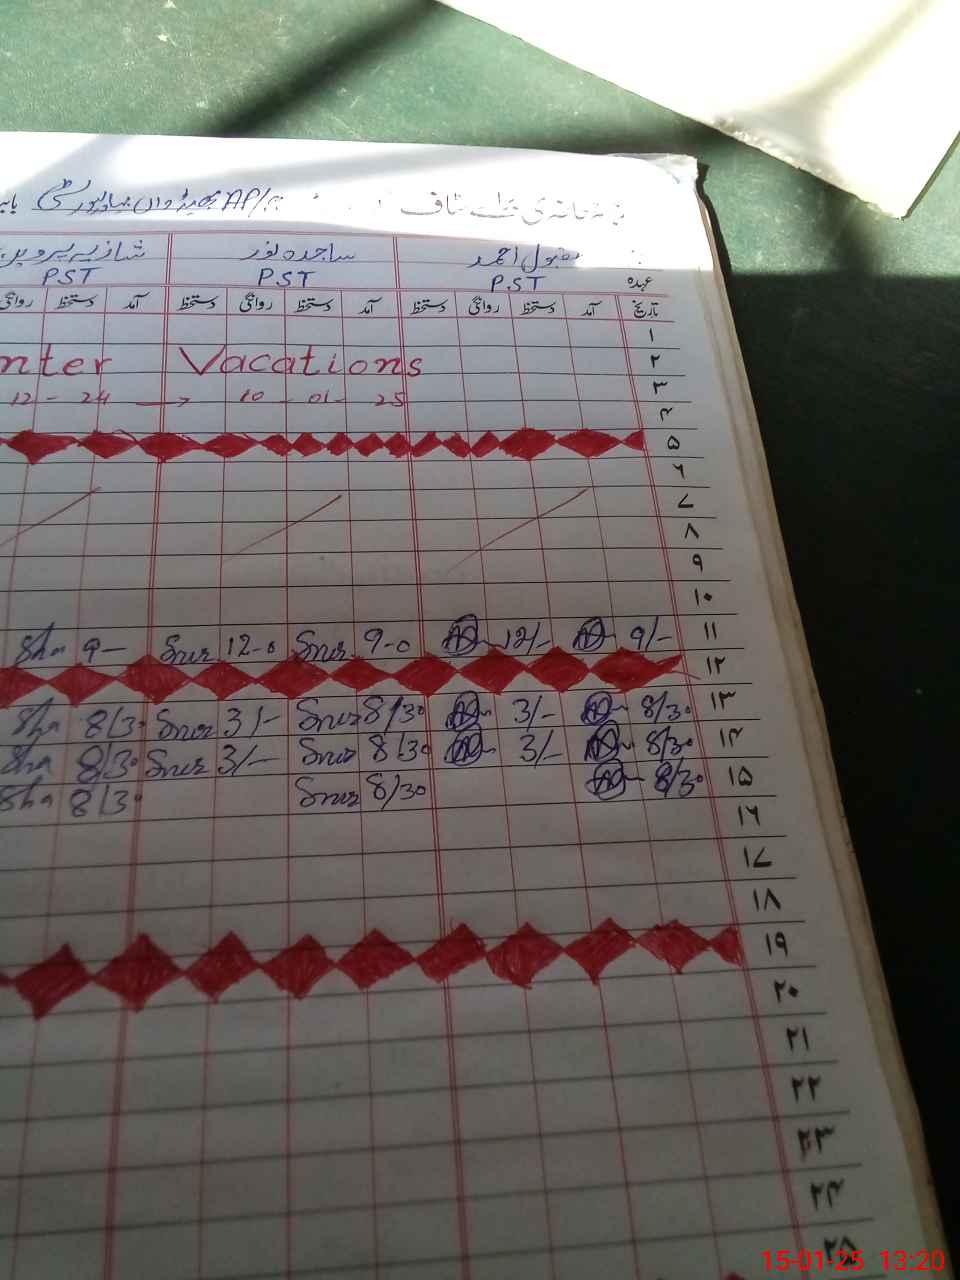 سٹاف AP/
مقبول احمد ساجدہ نور شازیہ پروین
عہدہ PST PST PST
تاریخ آمد دستخط روانگی دستخط آمد دستخط روانگی دستخط آمد دستخط روانگی
۱
nter Vacations ۲
12 - 24 → 10 - 01 - 25 ۳
۴
۵
۶
۷
۸
۹
۱۰
Sha 9- Snur 12-0 Snur 9-0 12/- 9/- ۱۱
۱۲
Sha 8/30 Snur 3/- Snur 8/30 3/- 8/30 ۱۳
Sha 8/30 Snur 3/- Snur 8/30 3/- 8/30 ۱۴
Sha 8/30 Snur 8/30 8/30 ۱۵
۱۶
۱۷
۱۸
۱۹
۲۰
۲۱
۲۲
۲۳
۲۴
۲۵
15-01-25 13:20